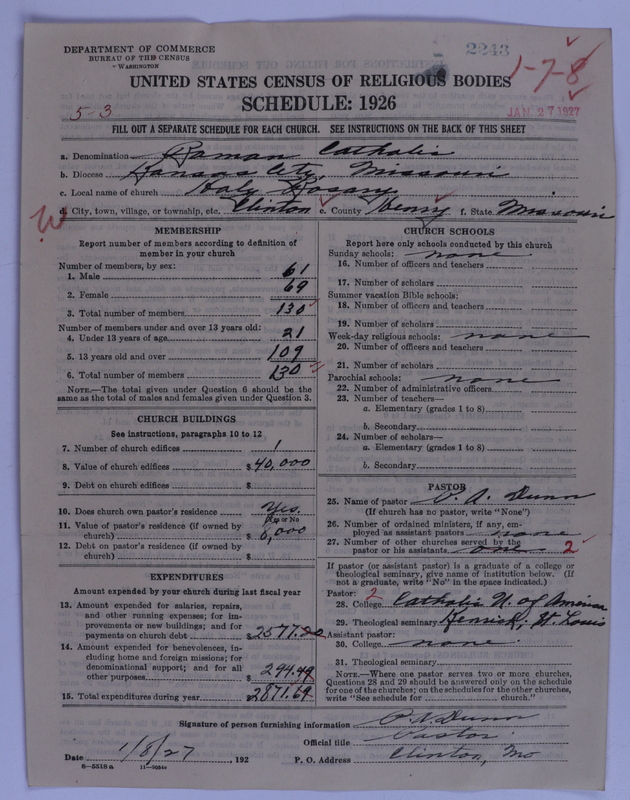 DEPARTMENT OF COMMERCE
BUREAU OF THE CENSUS
WASHINGTON
2243
1-7-8
UNITED STATES CENSUS OF RELIGIOUS BODIES
SCHEDULE: 1926
5-3
JAN 27 1927
FILL OUT A SEPARATE SCHEDULE FOR EACH CHURCH. SEE INSTRUCTIONS ON THE BACK OF THIS SHEET
a. Denomination Roman Catholic
b. Diocese Kansas City, Missouri
c. Local name of church Holy Rosary
d. City, town, village, or township, etc. Clinton e. County Henry f. State Missouri
MEMBERSHIP
Report number of members according to definition of
member in your church
Number of members, by sex:
1. Male 61
2. Female 69
3. Total number of members 130
Number of members under and over 13 years old:
4. Under 13 years of age 21
5. 13 years old and over 109
6. Total number of members 130
NOTE.—The total given under Question 6 should be the
same as the total of males and females given under Question 3.
CHURCH BUILDINGS
See instructions, paragraphs 10 to 12
7. Number of church edifices 1
8. Value of church edifices $40,000
9. Debt on church edifices $
10. Does church own pastor's residence Yes
Yes or No
11. Value of pastor's residence (if owned by
church) $ 6,000
12. Debt on pastor's residence (if owned by
church) $
EXPENDITURES
Amount expended by your church during last fiscal year
13. Amount expended for salaries, repairs,
and other running expenses; for im-
provements or new buildings; and for
payments on church debt $2577.20
14. Amount expended for benevolences, in-
cluding home and foreign missions; for
denominational support; and for all
other purposes $ 294.49
15. Total expenditures during year $2871.69
CHURCH SCHOOLS
Report here only schools conducted by this church
Sunday schools: none
16. Number of officers and teachers
17. Number of scholars
Summer vacation Bible schools:
18. Number of officers and teachers
19. Number of scholars
Week-day religious schools: none
20. Number of officers and teachers
21. Number of scholars
Parochial schools: none
22. Number of administrative officers
23. Number of teachers—
a. Elementary (grades 1 to 8)
b. Secondary
24. Number of scholars—
a. Elementary (grades 1 to 8)
b. Secondary
PASTOR
25. Name of pastor O. A. Dunn
(If church has no pastor, write "None")
26. Number of ordained ministers, if any, em-
ployed as assistant pastors none
27. Number of other churches served by the
pastor or his assistants one 2
If pastor (or assistant pastor) is a graduate of a college or
theological seminary, give name of institution below. (If
not a graduate, write "No" in the space indicated.)
Pastor: 2
28. College Catholic U. of America
29. Theological seminary Kenrick, St. Louis
Assistant pastor:
30. College none
31. Theological seminary
NOTE.—Where one pastor serves two or more churches,
Questions 28 and 29 should be answered only on the schedule
for one of the churches; on the schedules for the other churches,
write "See schedule for church."
Signature of person furnishing information Dunn
Official title Pastor
Date 1/8/27, 192 P. O. Address Clinton, Mo
8—5518a